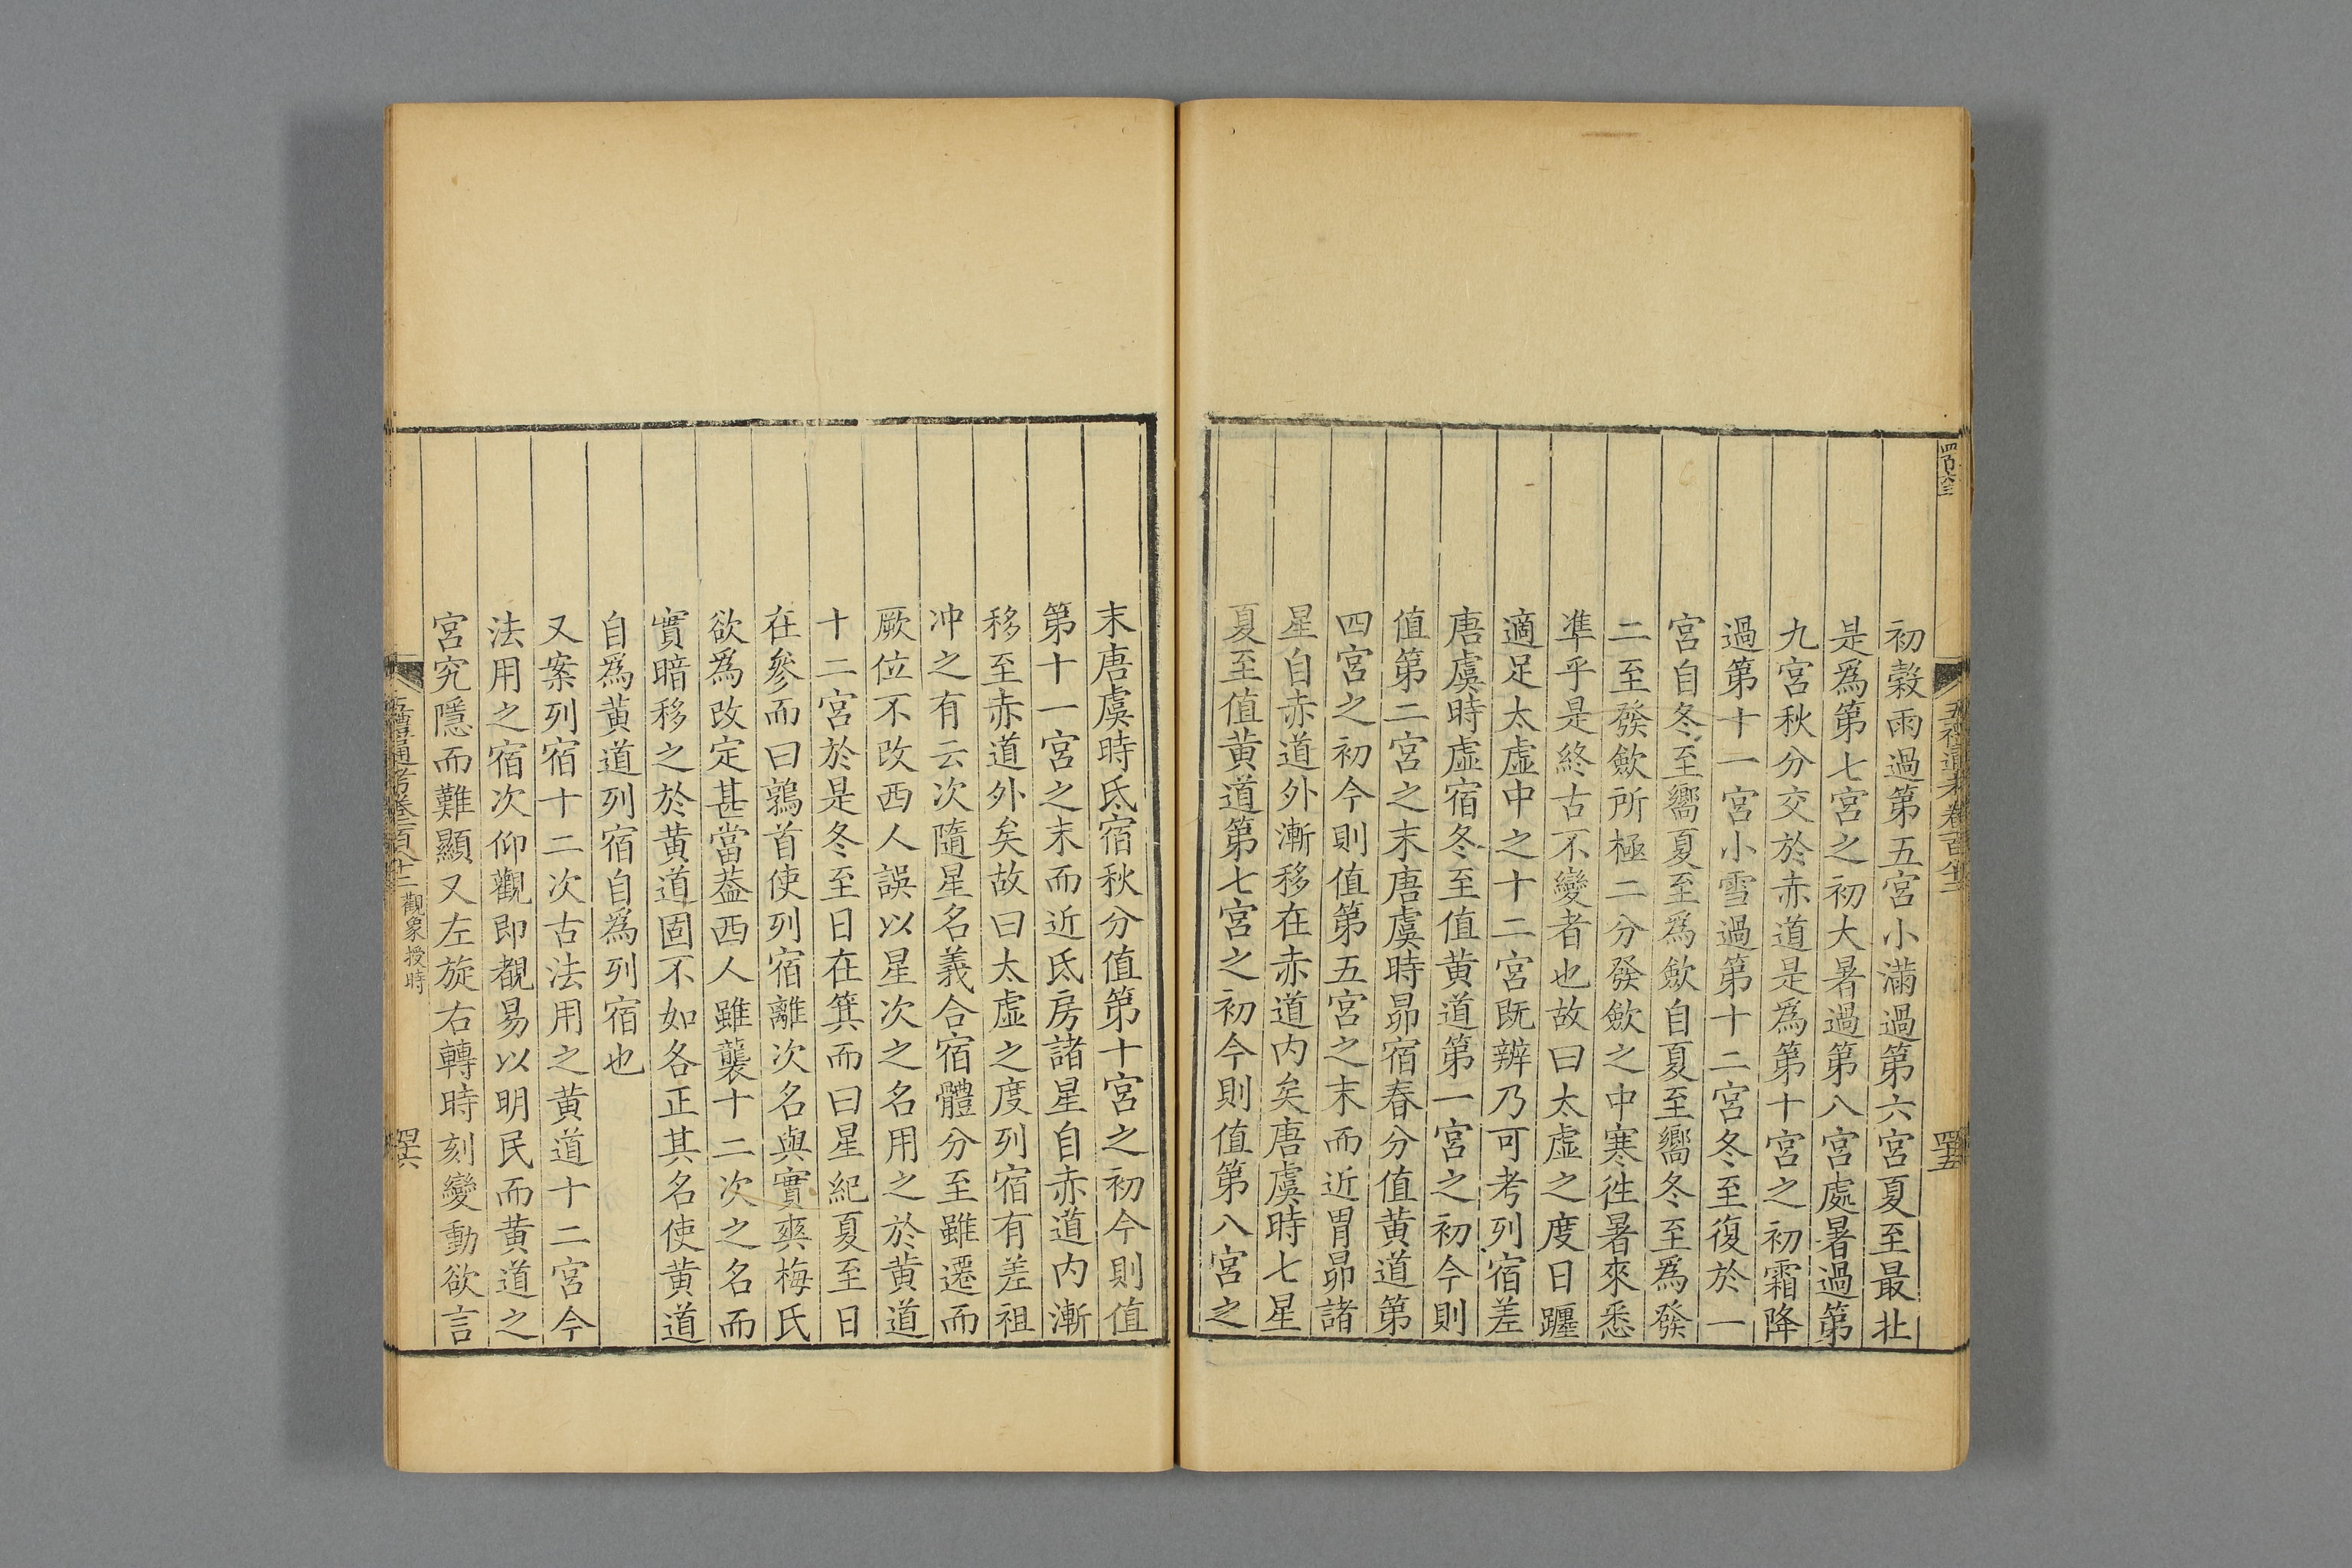 初穀雨過第五宮小滿過第六宮夏至最北
是爲第七宮之初大暑過第八宮處暑過第
九宮秋分交於赤道是爲第十宮之初霜降
過第十一宮小雪過第十二宮冬至復於一
宮自冬至嚮夏至爲斂自夏至嚮冬至爲發
二至發斂所極二分發斂之中寒徃暑來悉
準乎是終古不變者也故曰太虛之度日躔
適足太虛中之十二宮既辨乃可考列宿差
唐虞時虛宿冬至值黃道第一宮之初今則
值第二宮之末唐虞時昴宿春分值黃道第
四宮之初今則值第五宮之末而近胃昴諸
星自赤道外漸移在赤道内矣唐虞時七星
夏至值黃道第七宮之初今則值第八宮之
末唐虞時氐宿秋分值第十宮之初今則值
第十一宮之末而近氐房諸星自赤道内漸
移至赤道外矣故曰太虛之度列宿有差祖
冲之有云次隨星名義合宿體分至雖遷而
厥位不改西人誤以星次之名用之於黃道
十二宮於是冬至日在箕而曰星紀夏至日
在參而曰鶉首使列宿離次名與實爽梅氏
欲爲改定甚當葢西人雖襲十二次之名而
實暗移之於黃道固不如各正其名使黃道
自爲黃道列宿自爲列宿也
又案列宿十二次古法用之黃道十二宮今
法用之宿次仰觀即覩易以明民而黃道之
宮究隱而難顯又左旋右轉時刻變動欲言
五禮通考卷一百八十二 觀象授時